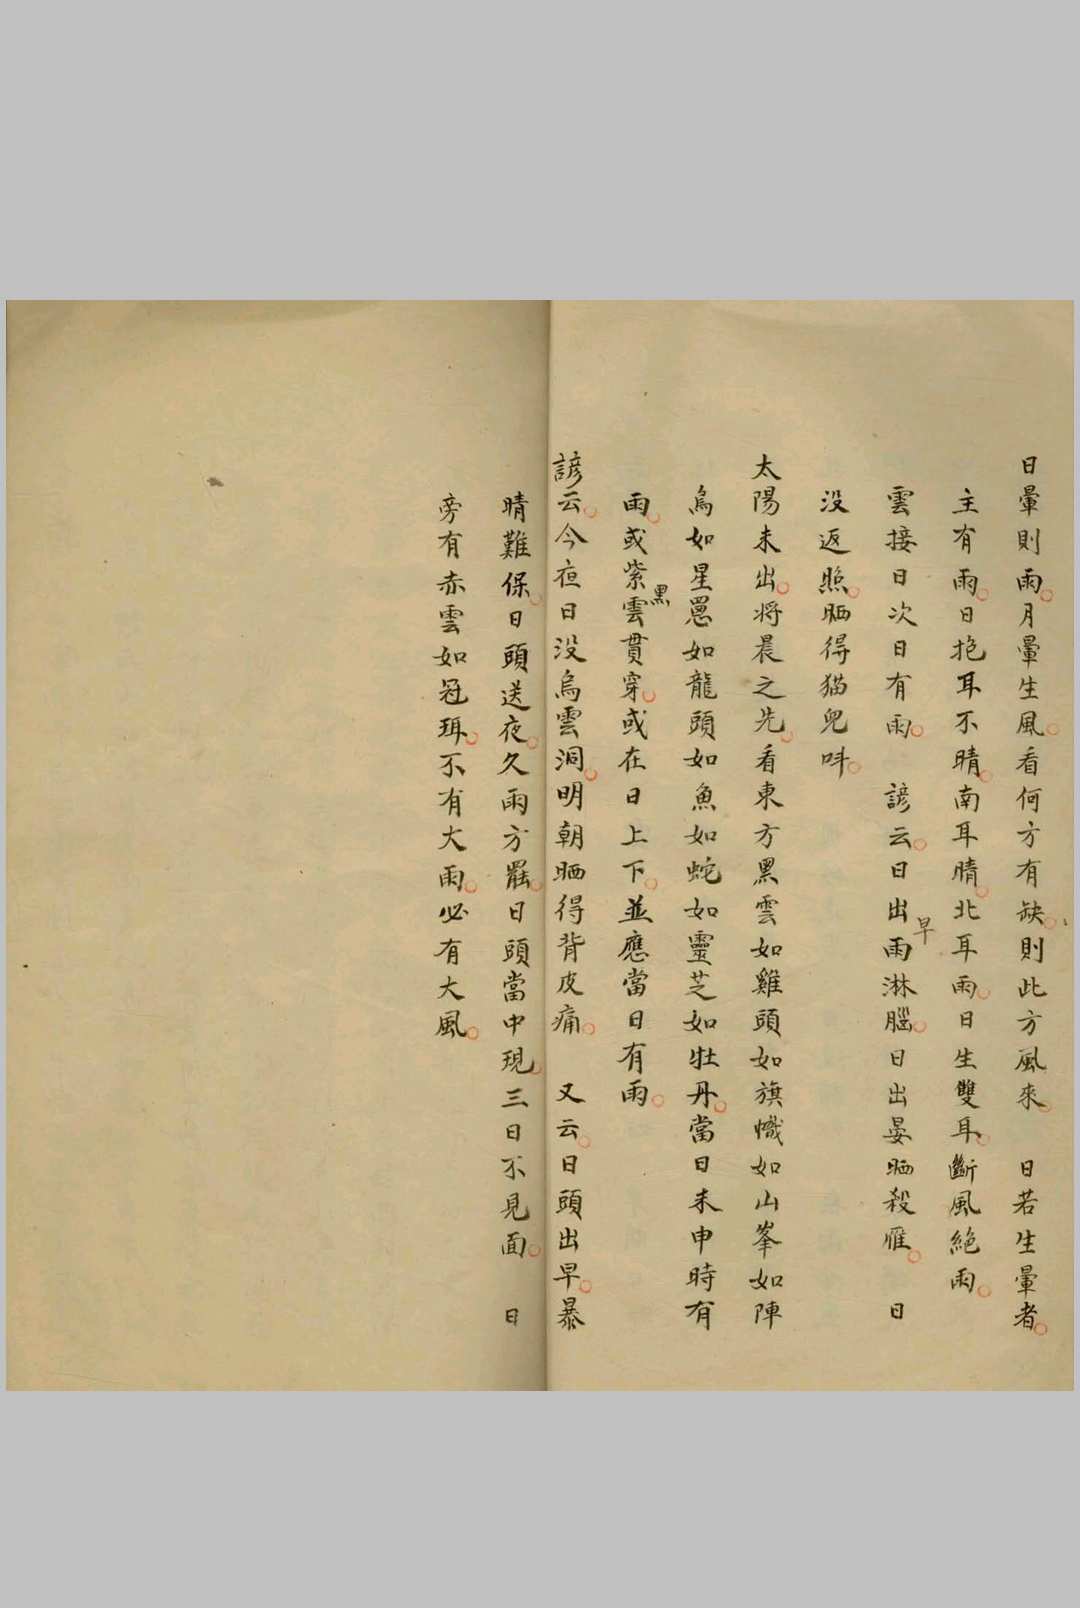 日暈則雨月暈生風看何方有缺則此方風來　日若生暈者
主有雨日抱耳不晴南耳晴北耳雨日生雙耳斷風絕雨
雲接日次日有雨　諺云日出早雨淋腦日出晏晒殺雁　日
没返照晒得猫兒呌
太陽未出将晨之先看東方黑雲如雞頭如旗幟如山峯如陣
鳥如星罳如龍頭如魚如蛇如靈芝如牡丹當日未申時有
雨或紫黑雲貫穿或在日上下並應當日有雨
諺云今夜日没烏雲洞明朝晒得背皮痛　又云日頭出早暴
晴難保日頭送夜久雨方罷日頭當中現三日不見面　日
旁有赤雲如冠珥不有大雨必有大風